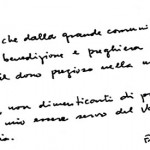 che dalla grande comuni
benedizione e preghiera
il dono prezioso nella
non dimenticanti di p
mio essere servo del V
ia.
F